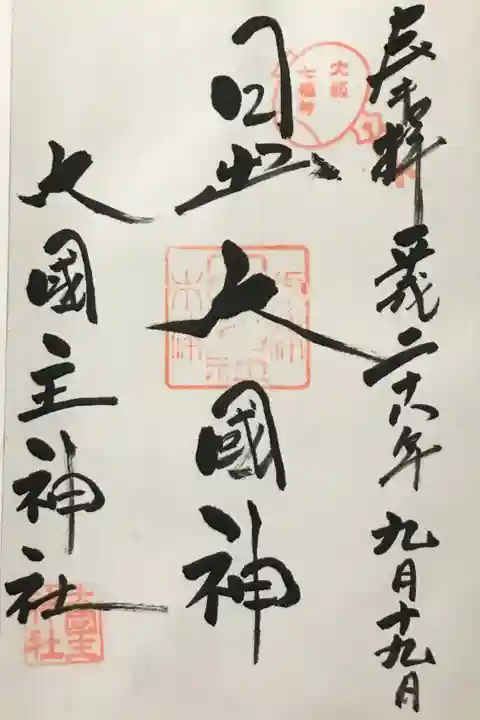 奉拝 平成二十八年 九月十九日
大阪
七福神
日出大國神
大國主神社
大國主
神社